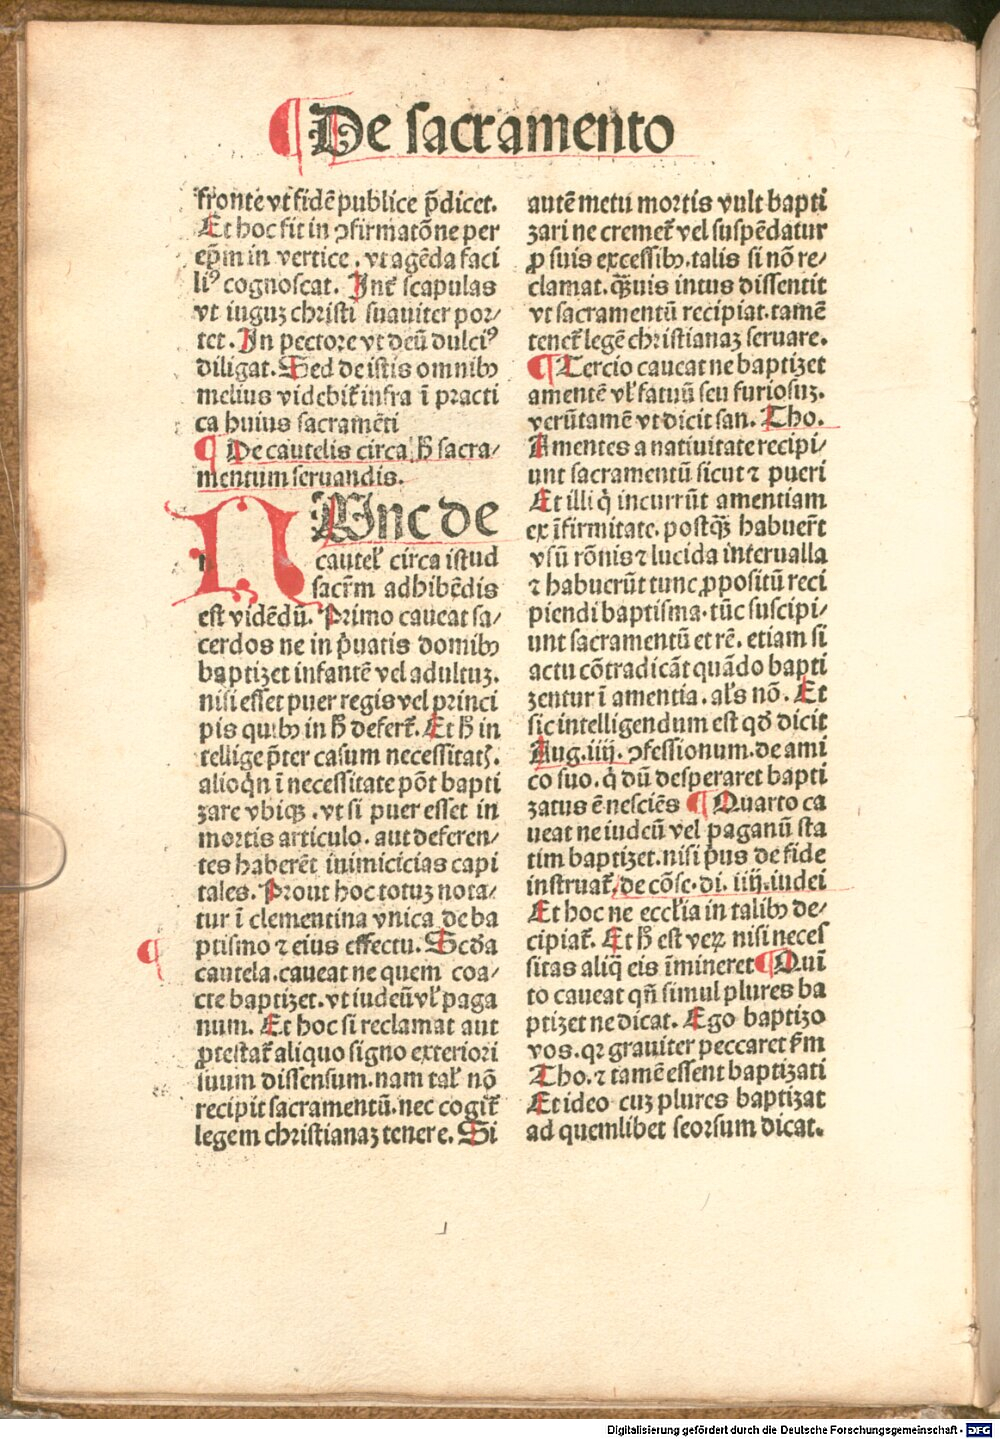 ¶ De sacramento
fronte vt fidē publice p̄dicet.
Et hoc fit in ꝯfirmatōne per
ep̄m in vertice . vt agēda faci
liꝰ cognoscat. Int̄ scapulas
vt iuguꝫ christi suauiter por/
tet. In pectore vt deū dulciꝰ
diligat. Sed de istis omnibꝰ
melius videbit̄ infra ī practi
ca huius sacramēti
¶ De cautelis circa h̄ sacra/
mentum seruandis.
NUnc de
cautel̄ circa istud
sacr̄m adhibēdis
est vidēdū. Primo caueat sa/
cerdos ne in p̄uatis domibꝰ
baptizet infantē vel adultuꝫ.
nisi esset puer regis vel princi
pis quibꝰ in h̄ defert̄. Et h̄ in
tellige p̄ter casum necessitatꝭ.
alioqn̄ ī necessitate pōt bapti
zare vbiqꝫ . vt si puer esset in
mortis articulo . aut deferen/
tes haberēt inimicicias capi
tales. Prout hoc totuꝫ nota/
tur ī clementina vnica de ba
ptismo ⁊ eius effectu. Scd̄a
cautela . caueat ne quem coa/
cte baptizet . vt iudeū vl̄ paga
num. Et hoc si reclamat aut
ꝓtestat̄ aliquo signo exteriori
suum dissensum . nam tal̄ nō
recipit sacramentū . nec cogit̄
legem christianaꝫ tenere. Si
autē metu mortis vult bapti
zari ne cremet̄ vel suspēdatur
ꝓ suis excessibꝰ . talis si nō re/
clamat . qꝫuis intus dissentit
vt sacramentū recipiat . tamē
tenet̄ legē christianaꝫ seruare.
¶ Tercio caueat ne baptizet
amentē vl̄ fatuū seu furiosuꝫ.
verūtamē vt dicit san. Tho.
Amentes a natiuitate recipi/
unt sacramentū sicut ⁊ pueri
Et illi q̄ incurrūt amentiam
ex īfirmitate . postqꝫ habuer̄t
vsū rōnis ⁊ lucida interualla
⁊ habuerūt tunc ꝓpositū reci
piendi baptisma . tūc suscipi/
unt sacramentū et rē . etiam si
actu cōtradicāt quādo bapti
zentur ī amentia . al̄s nō . Et
sic intelligendum est qd̄ dicit
Aug. iiij. ꝯfessionum . de ami
co suo . q̄ dū desperaret bapti
zatus ē nesciēs ¶ Quarto ca
ueat ne iudeū vel paganū sta
tim baptizet . nisi p̄us de fide
instruat̄ / de cōsc. di. iiij. iudei
Et hoc ne eccl̄ia in talibꝰ de/
cipiat̄. Et h̄ est veꝝ nisi neces
sitas aliq̄ eis īmineret ¶ Qui
to caueat qn̄ simul plures ba
ptizet ne dicat. Ego baptizo
vos . qꝛ grauiter peccaret s̄m
Tho. ⁊ tamē essent baptizati
Et ideo cuꝫ plures baptizat
ad quemlibet seorsum dicat.
Digitalisierung gefördert durch die Deutsche Forschungsgemeinschaft - DFG